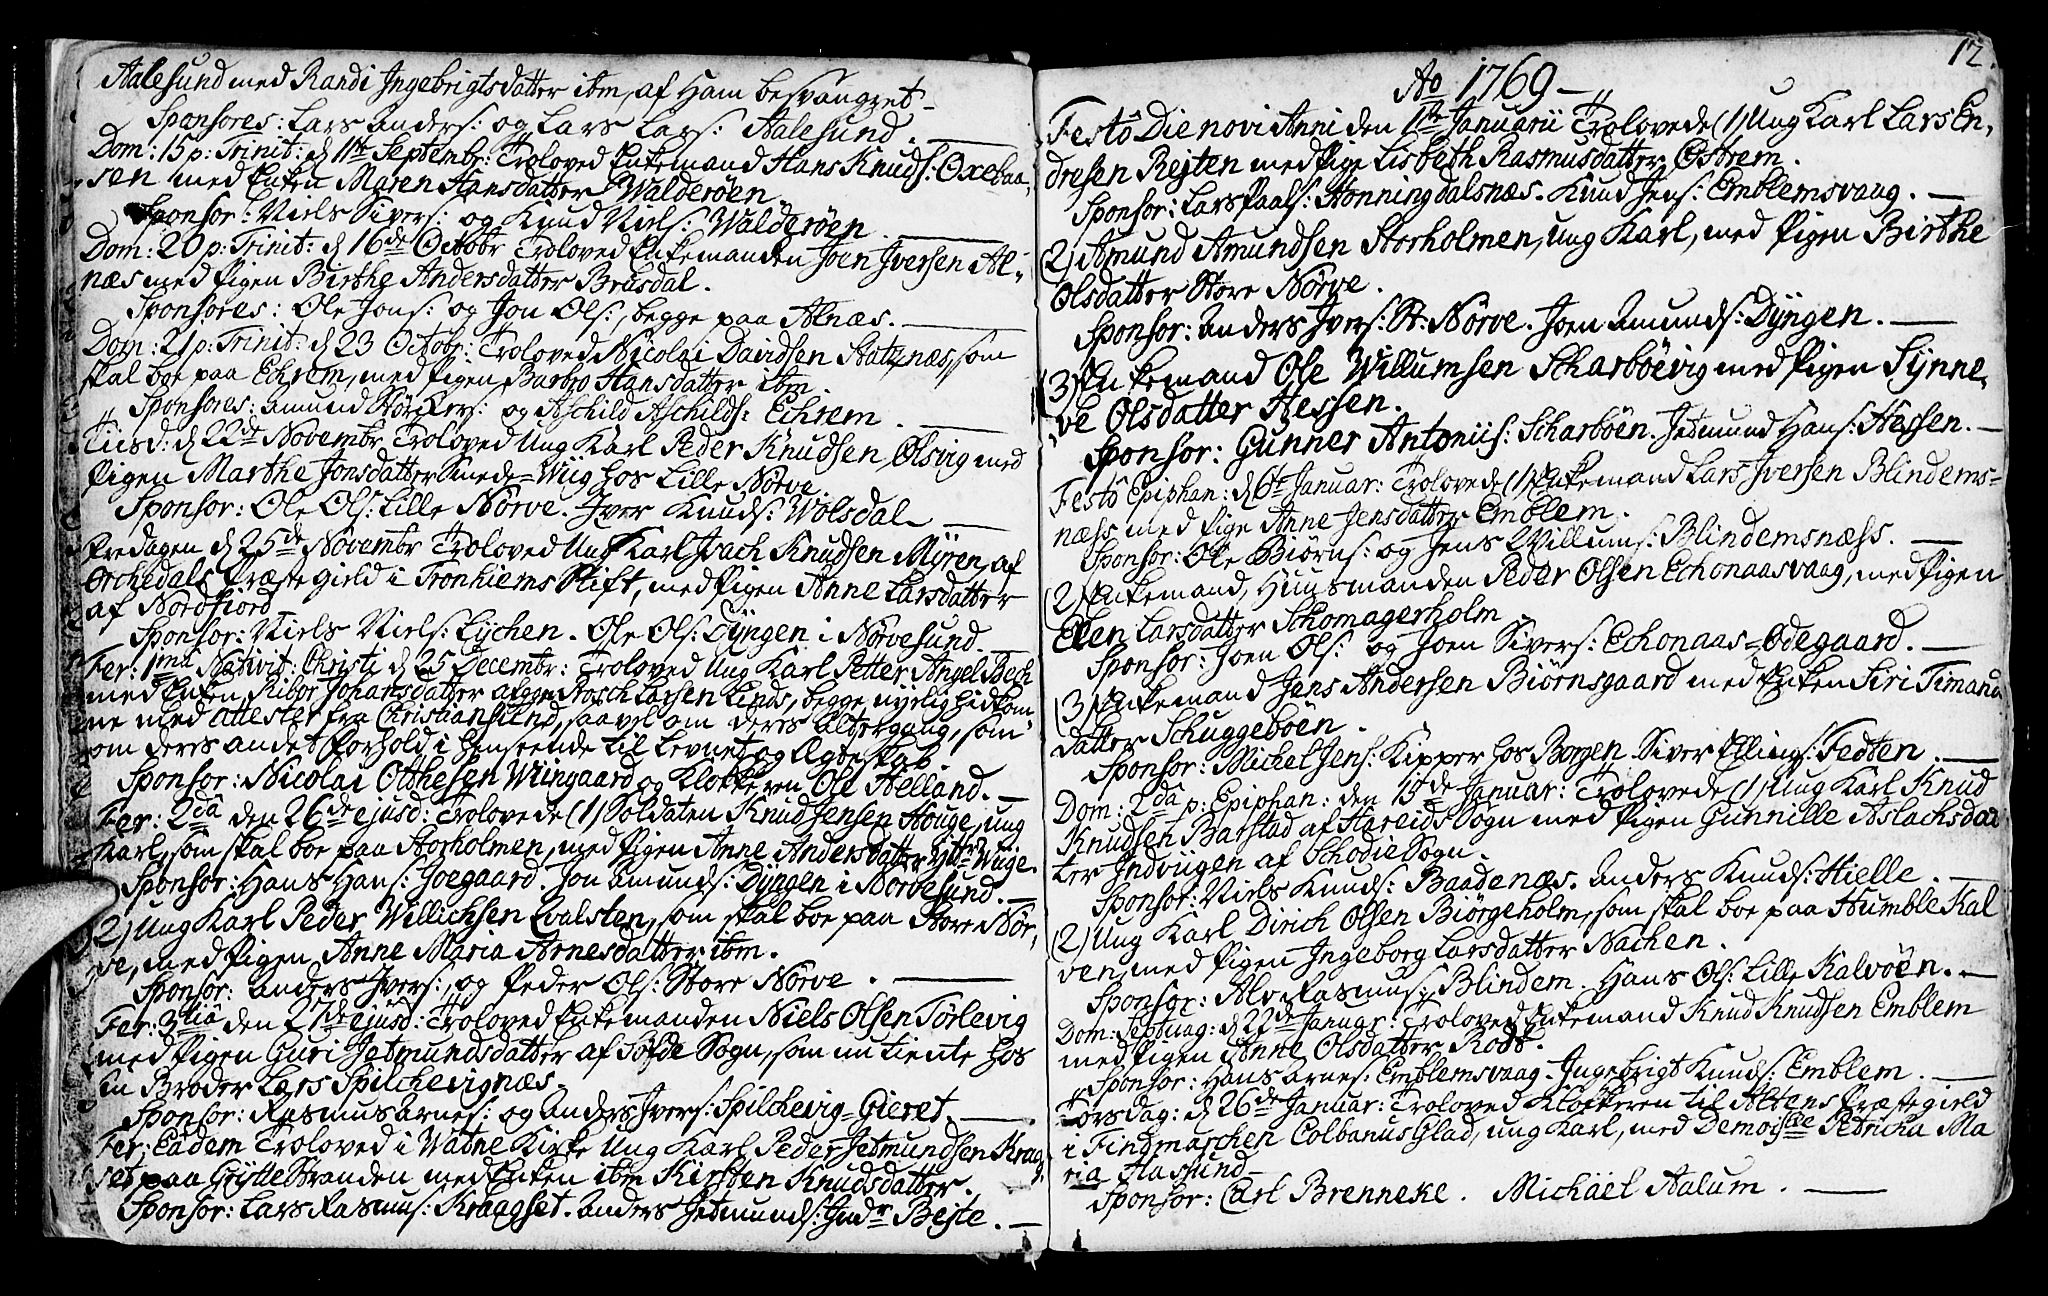 Aalesund med Randi Ingebrigtsdatter ibm, af Ham besvangret
Sponsores: Lars Anders: og Lars Lars: Aalesund.
Dom: 15 p: Trinit: d 11te Septembr: Troloved Enkemand Hans Knuds: Oxebaa,
sen med Enken Maren Hansdatter Walderöen.
Sponsor: Niels Sivers: og Knud Niels: Walderöen.
Dom: 20 p: Trinit: d 16de Octobr Troloved Enkemanden Joen Iversen Al,
næs med Pigen Birthe Andersdatter Brusdal.
Sponsores: Ole Jons: og Jon Ols:, begge paa Alnæs.
Dom: 21 p: Trinit: d 23 Octobr: Troloved Nicolai Davidsen Statznæs, som
skal boe paa Echrem, med Pigen Barbro Hansdatter ibm.
Sponsores: Amund Störkers: og Aschild Aschilds: Echrem.
Tiisd: d 22de Novembr Troloved Ung Karl Peder Knudsen Ölsvig med
Pigen Marthe Jonsdatter Smede=Wiig hos Lille Nörve.
Sponsor: Ole Ols: Lille Nörve. Iver Knuds: Wolsdal
Fredagen d 25de Novembr Troloved Ung Karl Isach Knudsen Myren, af
Orchedals Præstegield i Tronhiems Stift, med Pigen Anne Larsdatter
af Nordfiord
Sponsor: Niels Niels: Eychen. Ole Ols: Dyngen i Nörvesund.
Fer: 1ma Nativit: Christi d 25 Decembr: Troloved Ung Karl Petter Angel Bech
med Enken Ribor Johansdatter afgge Stosch Larsen Linds, begge nyelig hidkom,
ne med attester fra Christiansund, saavel om deres Altergang, som
om deres andet Forhold i Henseende til Levnet og Ægteskab.
Sponsor: Nicolai Otthesen Wiingaard og Klokkeren Ole Helland.
Fer: 2da den 26de ejusd: Trolovede (1) Soldaten Knud Jensen Houge, ung
Karl, som skal boe paa Storholmen, med Pigen Anne Andersdatter Yttre=Wiige.
Sponsor: Hans Hans: Goegaard. Jon Amunds: Dyngen i Nörvesund.
2) Ung Karl Peder Willichsen Evalsten, som skal boe paa Store Nör,
ve, med Pigen Anne Maria Arnesdatter ibm.
Sponsor: Anders Ivers:, og Peder Ols: Store Nörve.
Fer: 3tia den 27de ejusd: Troloved Enkemanden Niels Olsen Törlevig
med Pigen Guri Jetmundsdatter af Söfde Sogn, som nu tiente hos
sin Broder Lars Spilchevignæs.
Sponsor: Rasmus Arnes: og Anders Ivers: Spilchevig=Gieret.
Fer: Eadem Troloved i Watne Kirke Ung Karl Peder Jetmundsen Kraag,
set paa Gryttestranden med Enken ibm Kirsten Knudsdatter.
Sponsor: Lars Rasmus: Kraagset. Anders Jetmunds: Indr Bejte.
12.
Ao 1769
Festo Die novi Anni den 1te Januarii Trolovede (1) Ung Karl Lars En,
dresen Rejten med Pige Lisbeth Rasmusdatter Östrem.
Sponsor: Lars Paals: Honningdalsnæs. Knud Jens: Emblemsvaag.
2) Amund Amundsen Storholmen, ung Karl, med Pigen Birthe
Olsdatter Store Nörve.
Sponsor: Anders Ivers: St: Nörve. Joen Amunds: Dyngen.
(3) Enkemand Ole Willumsen Scharböevig med Pigen Synne,
ve Olsdatter Hessen.
Sponsor: Gunner Antoniis: Scharböen. Jetmund Hans: Hessen.
Festo Epiphan: d 6te Januar: Trolovede (1) Enkemand Lars Iversen Blindems=
næss med Pige Anne Jensdatter Emblem.
Sponsor: Ole Biörns: og Jens Willums: Blindemsnæss.
(2) Enkemand, Huusmanden Peder Olsen Echonaasvaag, med Pigen
Elen Larsdatter Schomagerholm
Sponsor: Joen Ols: og Joen Sivers: Echonaas=Ödegaard.
(3) Enkemand Jens Andersen Biörnsgaard med Enken Siri Timand
datter Schuggeböen.
Sponsor: Michel Jens: Kipper hos Borgen. Siver Ellings: Fedten.
Dom: 2da p: Epiphan: den 15de Januar: Trolovede (1) Ung Karl Knud
Knudsen Barstad af Hareids Sogn med Pigen Gunnille Aslachsdat
ter Indvigen af Schodie Sogn.
Sponsor: Niels Knuds: Baadenæs. Anders Knuds: Hielle.
(2) Ung Karl Dirich Olsen Biörgeholm, som skal boe paa Humble Kal
ven, med Pigen Ingeborg Larsdatter Nachen.
Sponsor: Alv Rasmus: Blindem. Hans Ols: Lille Kalvöen.
Dom: Septuag: d 22de Januar: Troloved Enkemand Knud Knudsen Emblem
med Pigen Anne Olsdatter Rödt.
Sponsor: Hans Arnes: Emblemsvaag. Ingebrigt Knuds: Emblem.
Torsdag: d 26de Januar: Troloved Klokkeren til Altens Præstegield
i Findmarchen Colbanus Glad, ung Karl, med Demoiselle Petricha Ma
ria Aasund
Sponsor: Carl Brenneke. Michäel Aalum.